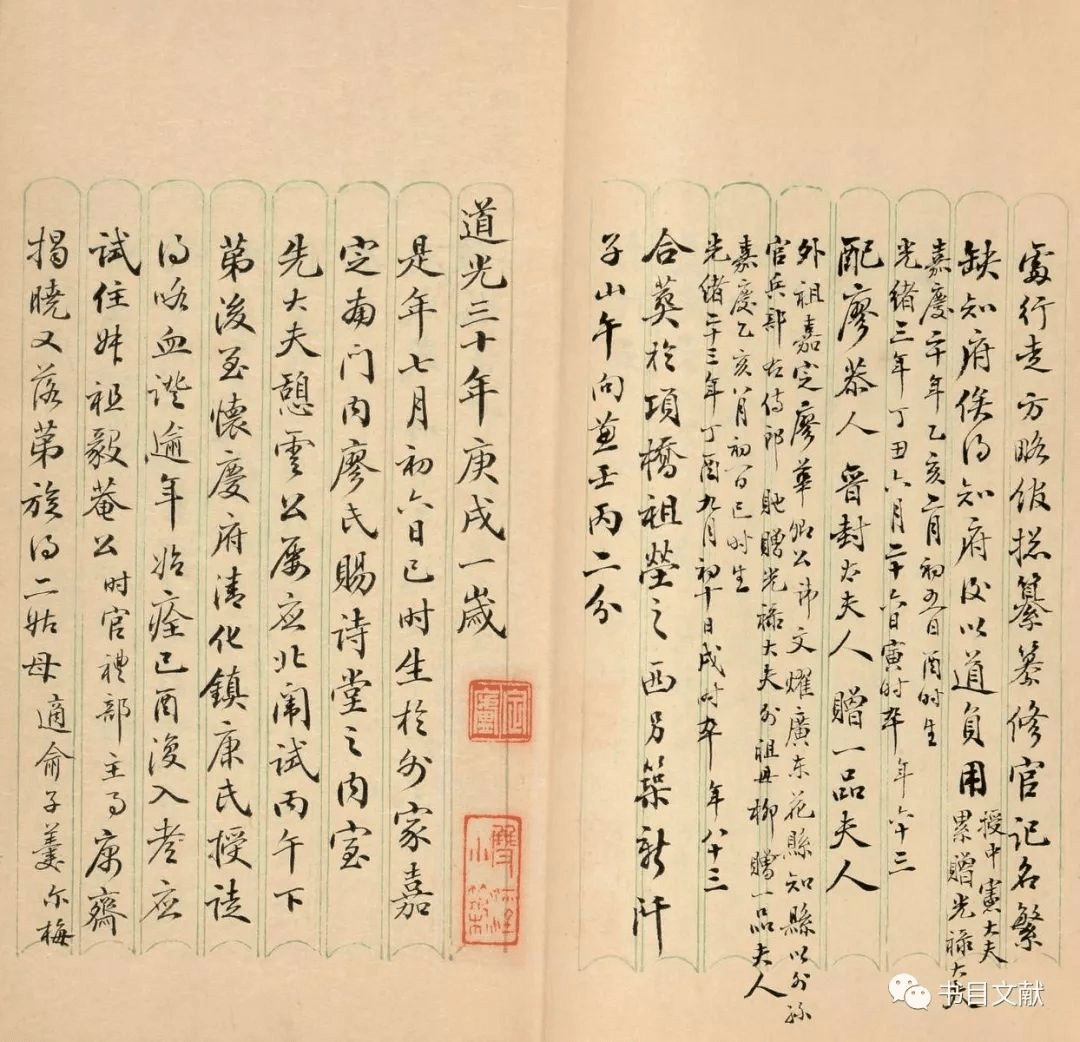 處行走方略館總纂纂修官記名繁
缺知府俟得知府後以道員用授中憲大夫累贈光祿大夫
嘉慶二十年乙亥二月初五日酉时生
光緒三年丁丑六月二十六日寅时卒年六十三
配廖恭人晉封太夫人贈一品夫人
外祖嘉定廖華卿公讳文耀廣东花縣知縣以外孫
官兵部右侍郎貤贈光祿大夫外祖母柳贈一品夫人
嘉慶乙亥八月初一日巳时生
光緒二十三年丁酉九月初十日戌时卒年八十三
合葬於項橋祖塋之西另築新阡
子山午向兼壬丙二分
道光三十年庚戌一歲
是年七月初六日巳时生於外家嘉
定南门内廖氏賜诗堂之内室
先大夫憩雲公屢应北闱試丙午下
第後至懷慶府清化鎮康氏授读
得咯血證逾年始痊己酉復入都应
試住妹祖毅菴公时官禮部主事康齋
揭曉又落第族得二姑母適俞子羹尔梅
書目文献